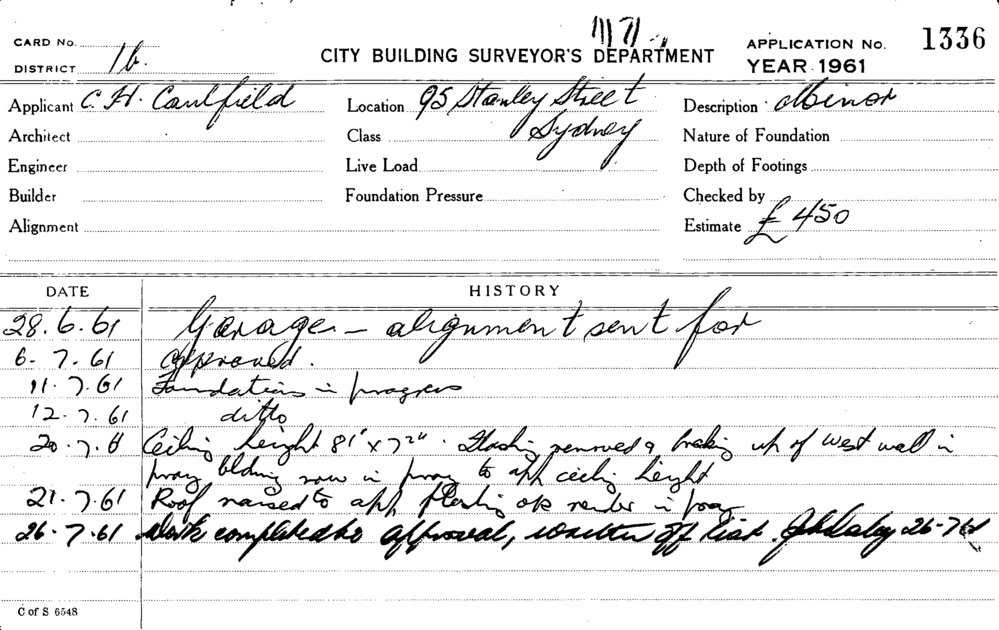 CARD No.
CITY BUILDING SURVEYOR'S DEPARTMENT
APPLICATION No. 1336
DISTRICT 1b.
YEAR 1961
Applicant C. H. Caulfield
Location 95 Stanley Street
Sydney
Description Minor
Architect
Class
Nature of Foundation
Engineer
Live Load
Depth of Footings
Builder
Foundation Pressure
Checked by
Alignment
Estimate £450
DATE HISTORY
28.6.61 Garage - alignment sent for
6-7.61 approved.
11.7.61 Foundations in progress
12.7.61 ditto
20.7.61 Ceiling height removed & up of west wall in
prog blding now in prog to app ceiling height
21.7.61 Roof raised to app ok render in prog
26.7.61 Work completed to approval, written off list. 26-7-61
C of S 6548